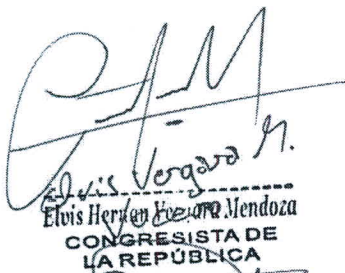 Elvis Vergara M.
Elvis Hernan Vergara Mendoza
Vocero
CONGRESISTA DE
LA REPÚBLICA